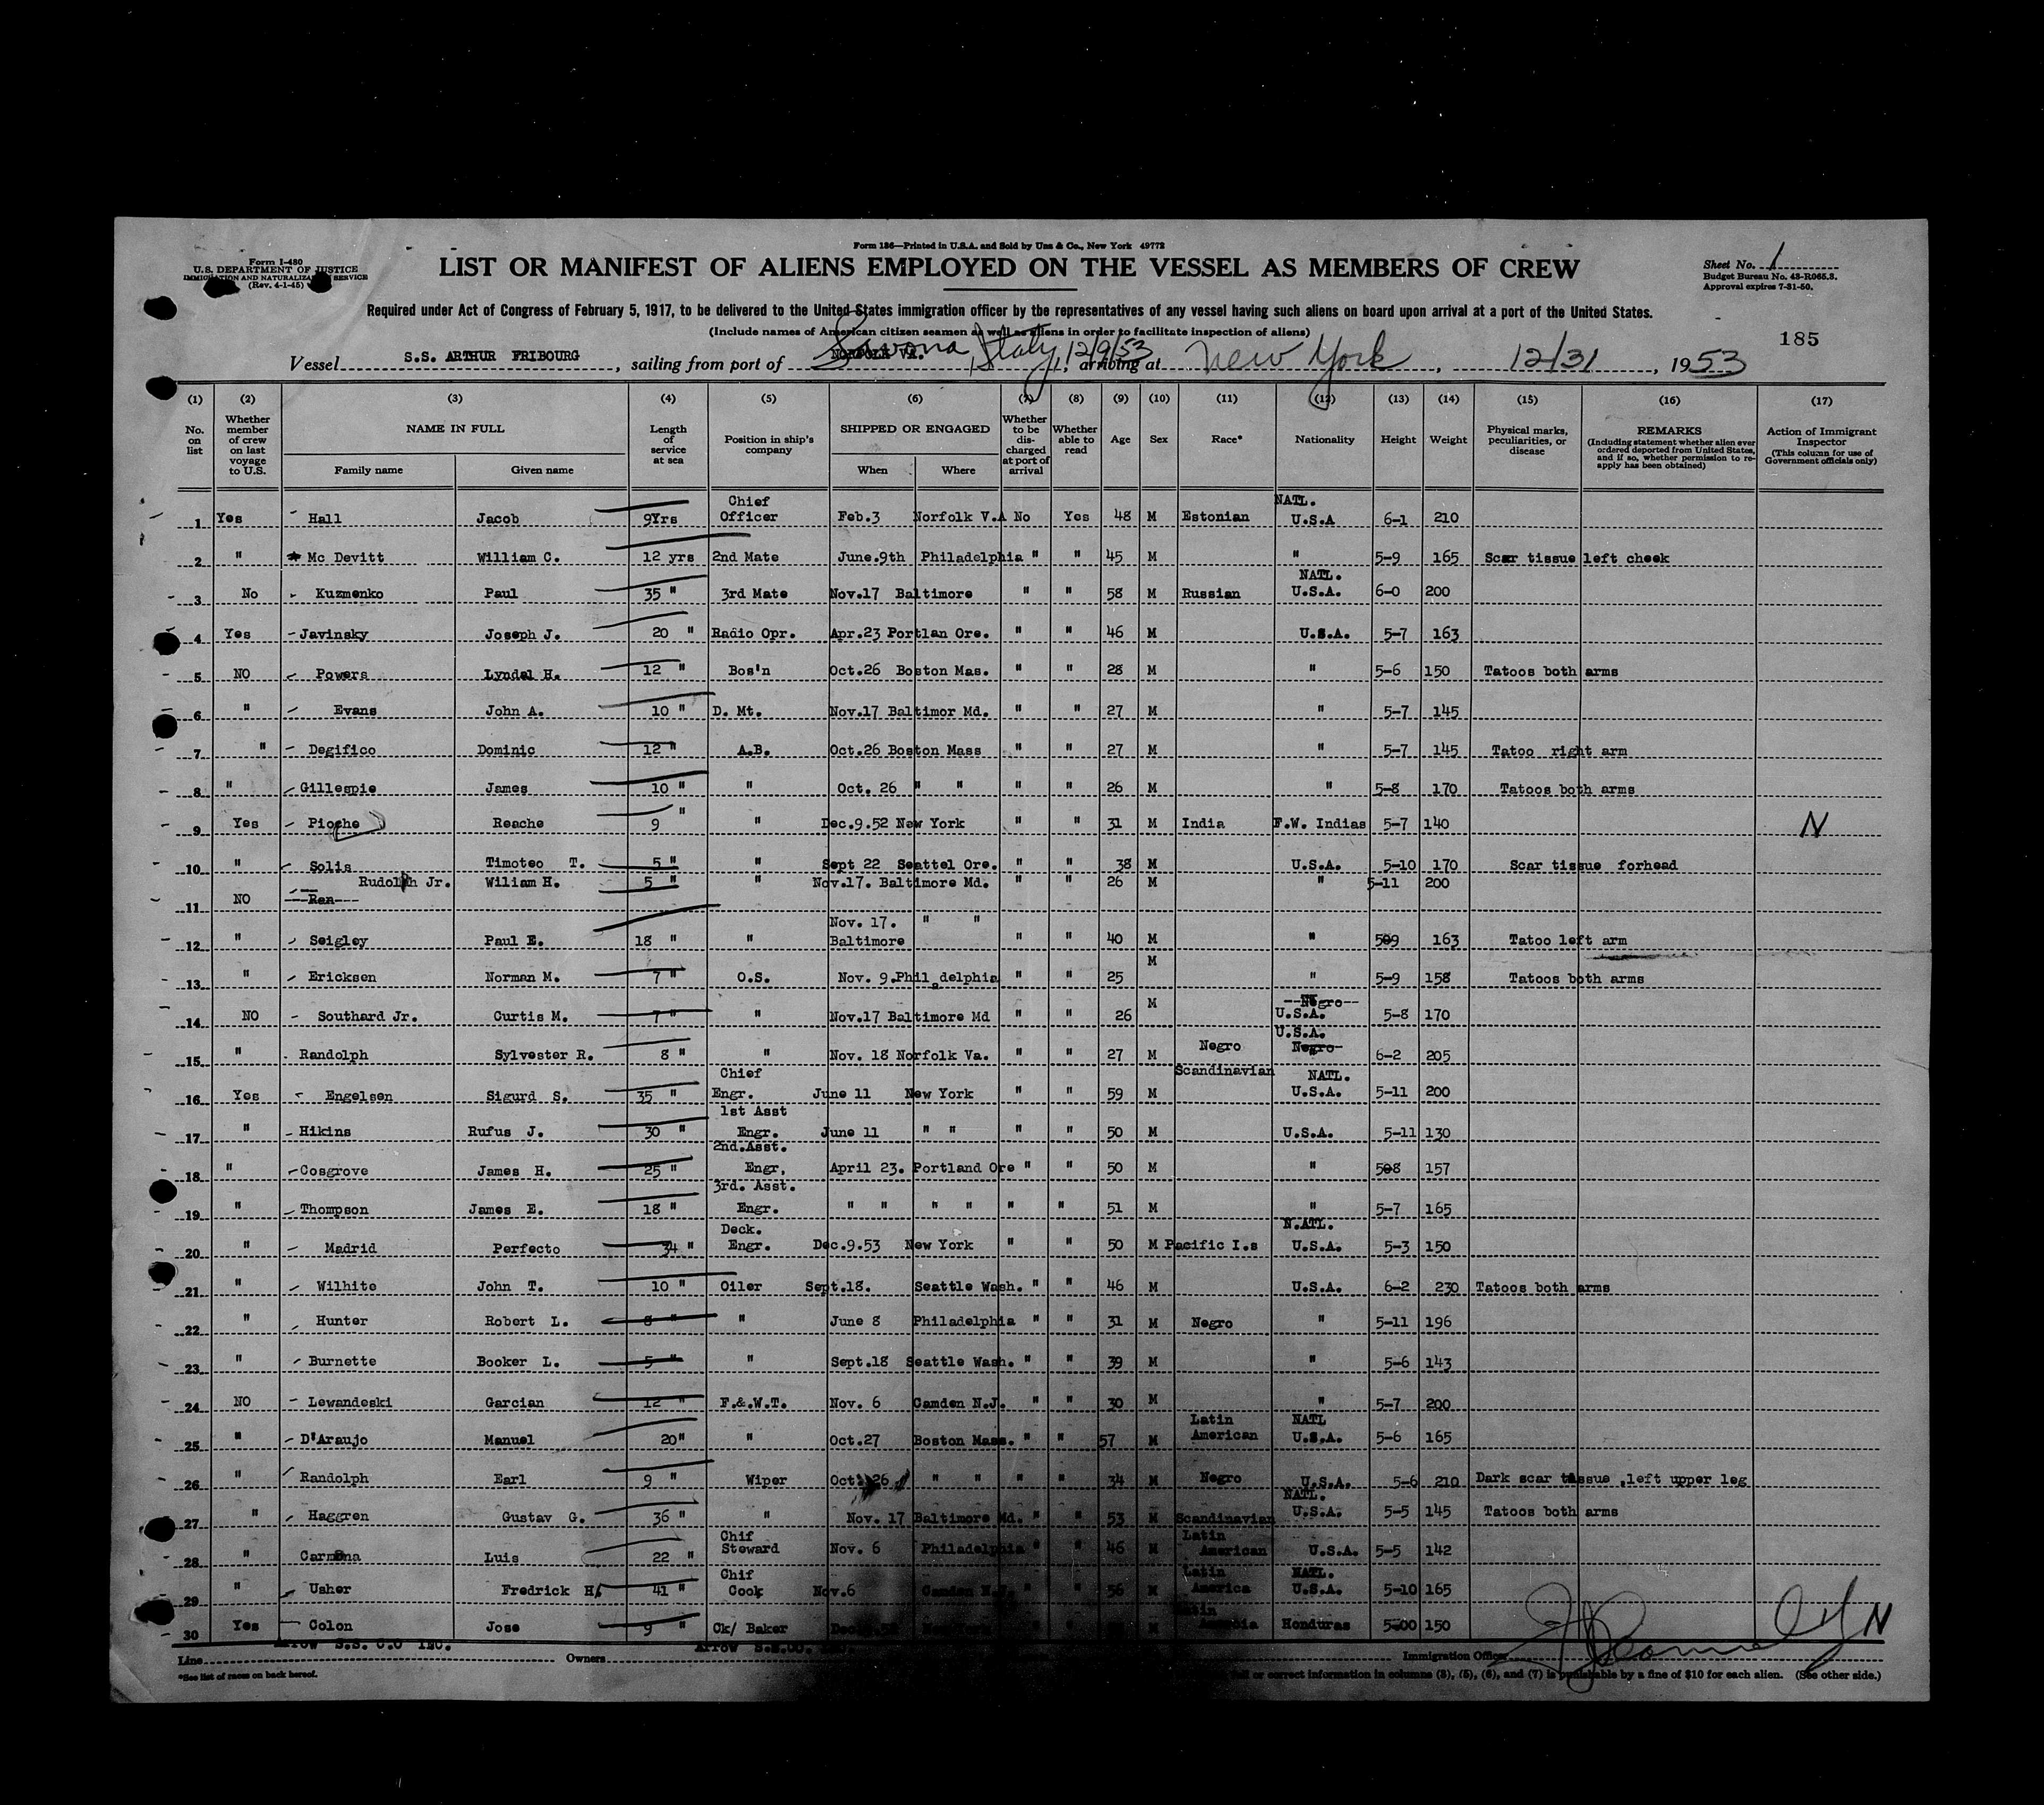 Form 186—Printed in U.S.A. and Sold by Unz & Co., New York 49772
Form I-480
U.S. DEPARTMENT OF JUSTICE
IMMIGRATION AND NATURALIZATION SERVICE
(Rev. 4-1-45)
LIST OR MANIFEST OF ALIENS EMPLOYED ON THE VESSEL AS MEMBERS OF CREW
Sheet No. 1
Budget Bureau No. 43-R065.3.
Approval expires 7-31-50.
Required under Act of Congress of February 5, 1917, to be delivered to the United States immigration officer by the representatives of any vessel having such aliens on board upon arrival at a port of the United States.
(Include names of American citizen seamen as well as aliens in order to facilitate inspection of aliens)
185
Vessel S.S. ARTHUR FRIBOURG, sailing from port of NORFOLK VA. Savona, Italy, 12/9/53, arriving at New York, 12/31, 1953
(1) (2) (3) (4) (5) (6) (7) (8) (9) (10) (11) (12) (13) (14) (15) (16) (17)
No. on list | Whether member of crew on last voyage to U.S. | NAME IN FULL | Family name | Given name | Length of service at sea | Position in ship's company | SHIPPED OR ENGAGED | When | Where | Whether to be discharged at port of arrival | Whether able to read | Age | Sex | Race* | Nationality | Height | Weight | Physical marks, peculiarities, or disease | REMARKS (Including statement whether alien ever ordered deported from United States, and if so, whether permission to reapply has been obtained) | Action of Immigrant Inspector (This column for use of Government officials only)
1 Yes Hall Jacob 9Yrs Chief Officer Feb.3 Norfolk V.A No Yes 48 M Estonian NATL. U.S.A 6-1 210
2 " Mc Devitt William C. 12 yrs 2nd Mate June.9th Philadelphia " " 45 M " 5-9 165 Scar tissue left cheek
3 No Kuzmenko Paul 35 " 3rd Mate Nov.17 Baltimore " " 58 M Russian NATL. U.S.A. 6-0 200
4 Yes Javinsky Joseph J. 20 " Radio Opr. Apr.23 Portlan Ore. " " 46 M U.S.A. 5-7 163
5 NO Powers Lyndal H. 12 " Bos'n Oct.26 Boston Mas. " " 28 M " 5-6 150 Tatoos both arms
6 " Evans John A. 10 " D. Mt. Nov.17 Baltimor Md. " " 27 M " 5-7 145
7 " Degifico Dominic 12 " A.B. Oct.26 Boston Mass " " 27 M " 5-7 145 Tatoo right arm
8 " Gillespie James 10 " " Oct. 26 " " " " 26 M " 5-8 170 Tatoos both arms
9 Yes Pioche Reache 9 " " Dec.9.52 New York " " 31 M India F.W. Indias 5-7 140 N
10 " Solis Timoteo T. 5 " " Sept 22 Seattel Ore. " " 38 M U.S.A. 5-10 170 Scar tissue forhead
11 NO Ran Rudolph Jr. Wiliam H. 5 " " Nov.17. Baltimore Md. " " 26 M " 5-11 200
12 " Seigley Paul E. 18 " " Nov. 17. " " Baltimore " " 40 M " 509 163 Tatoo left arm
13 " Ericksen Norman M. 7 " O.S. Nov. 9.Philadelphia " " 25 M " 5-9 158 Tatoos both arms
14 NO Southard Jr. Curtis M. 7 " " Nov.17 Baltimore Md " " 26 M --Negro-- U.S.A. 5-8 170
15 " Randolph Sylvester R. 8 " " Nov. 18 Norfolk Va. " " 27 M Negro U.S.A. Negro- 6-2 205
16 Yes Engelsen Sigurd S. 35 " Chief Engr. June 11 New York " " 59 M Scandinavian NATL. U.S.A. 5-11 200
17 " Hikins Rufus J. 30 " 1st Asst Engr. June 11 " " " " 50 M U.S.A. 5-11 130
18 " Cosgrove James H. 25 " 2nd.Asst. Engr, April 23. Portland Ore " " 50 M " 508 157
19 " Thompson James E. 18 " 3rd. Asst. Engr. " " " " " " 51 M " 5-7 165
20 " Madrid Perfecto 34 " Deck. Engr. Dec.9.53 New York " " 50 M Pacific I.s N.ATL. U.S.A. 5-3 150
21 " Wilhite John T. 10 " Oiler Sept.18. Seattle Wash. " " 46 M U.S.A. 6-2 230 Tatoos both arms
22 " Hunter Robert L. 8 " " June 8 Philadelphia " " 31 M Negro " 5-11 196
23 " Burnette Booker L. 5 " " Sept.18 Seattle Wash. " " 39 M " 5-6 143
24 NO Lewandeski Garcian 12 " F.&.W.T. Nov. 6 Camden N.J. " " 30 M " 5-7 200
25 " D'Araujo Manuel 20" " Oct.27 Boston Mass. " " 57 M Latin American NATL U.S.A. 5-6 165
26 " Randolph Earl 9 " Wiper Oct. 26 " " " " 34 M Negro U.S.A. 5-6 210 Dark scar tissue ,left upper leg
27 " Haggren Gustav G. 36 " " Nov. 17 Baltimore Md. " " 53 M Scandinavian NATL. U.S.A. 5-5 145 Tatoos both arms
28 " Carmona Luis 22 " Chif Steward Nov. 6 Philadelphia " " 46 M Latin American U.S.A. 5-5 142
29 " Usher Fredrick H. 41 " Chif Cook Nov.6 Camden N.J. " " 56 M Latin America NATL. U.S.A. 5-10 165
30 Yes Colon Jose 9 " Ck/ Baker M Honduras 5-00 150 N
Line Arrow S.S. C.O INC. Owners Arrow S.S.CO. Immigration Officer
*See list of races on back hereof.
or correct information in columns (3), (5), (6), and (7) is punishable by a fine of $10 for each alien. (See other side.)